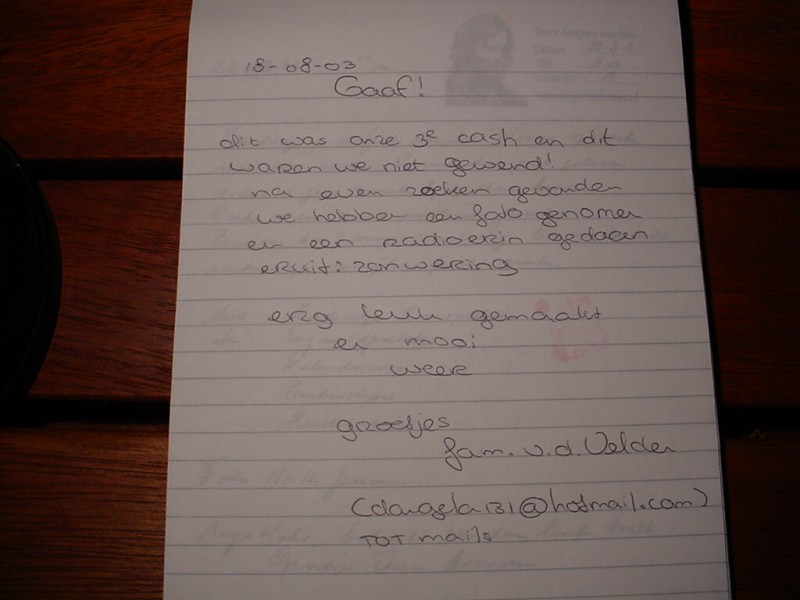 18-08-03
Gaaf!
dit was onze 3e cash en dit
waren we niet gewend!
na even zoeken gevonden
we hebben een foto genomen
en een radio erin gedaan
eruit: zonwering
erg leuk gemaakt
en mooi
weer
groetjes
fam. v.d. Velden
(dangela131@hotmail.com)
TOT mails